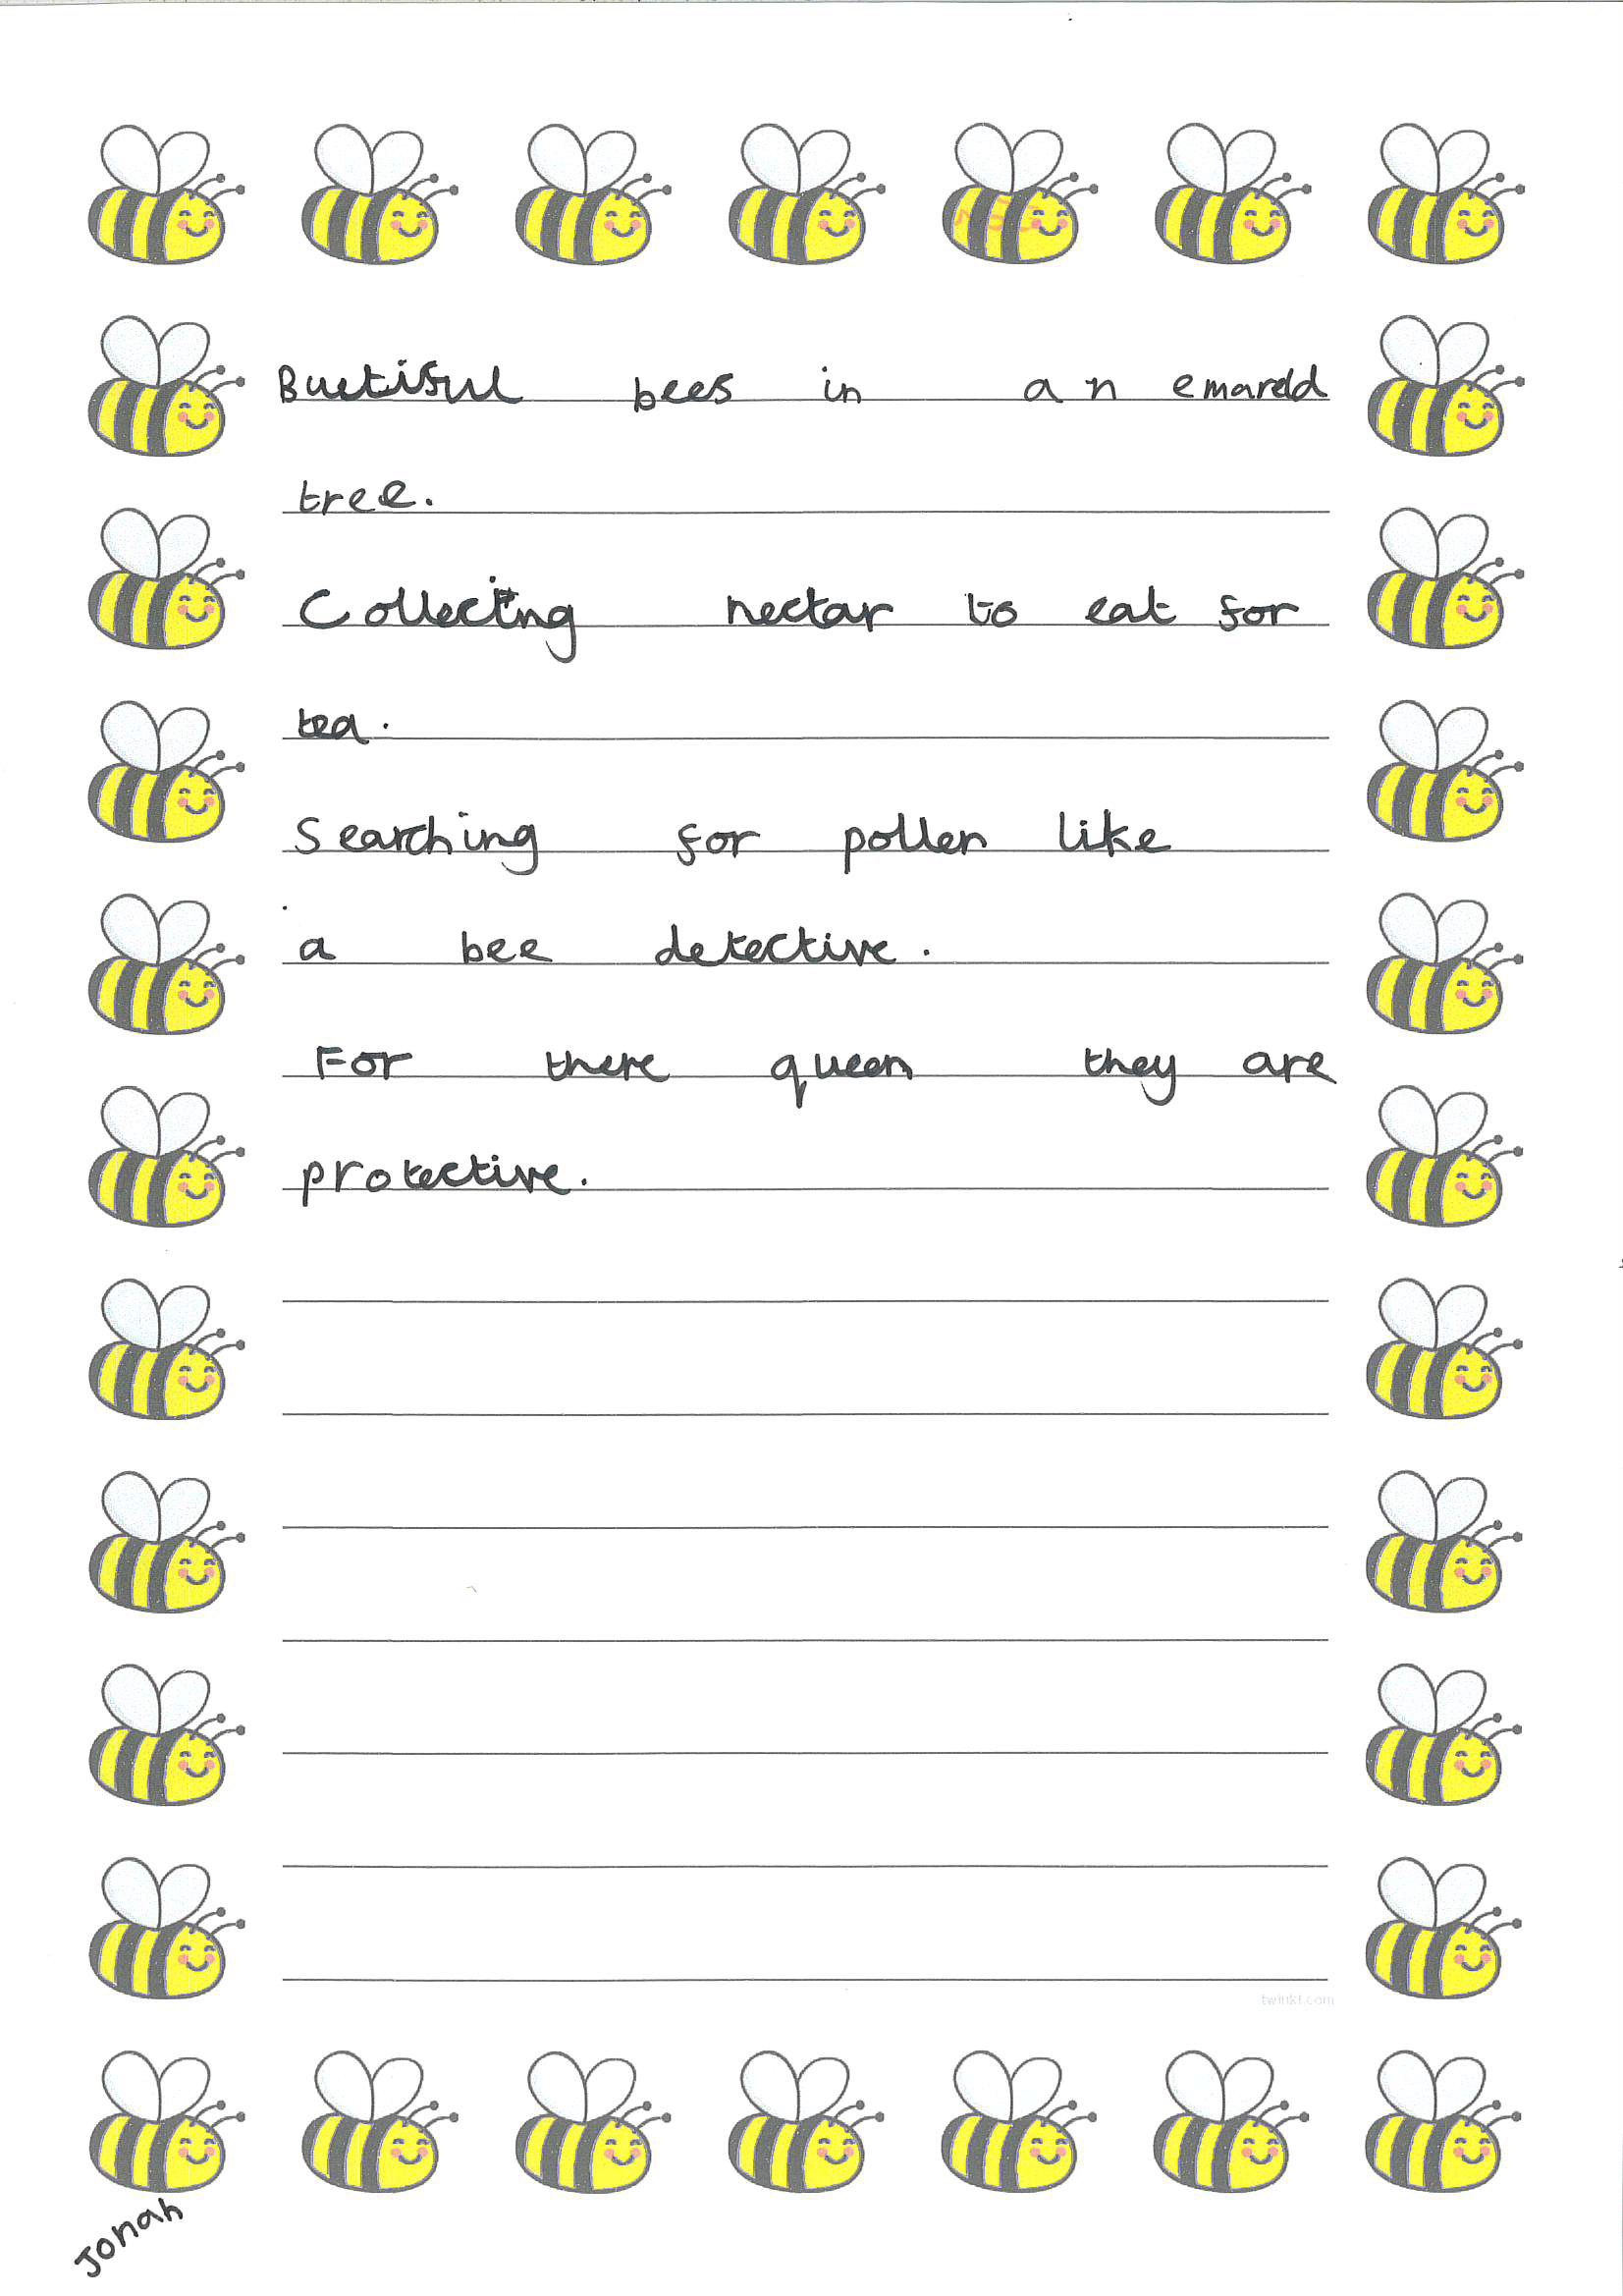 Buetiful bees in an emareld
tree.
Collecting nectar to eat for
tea.
Searching for pollen like
a bee detective.
For there queen they are
protective.
twinkl.com
Jonah